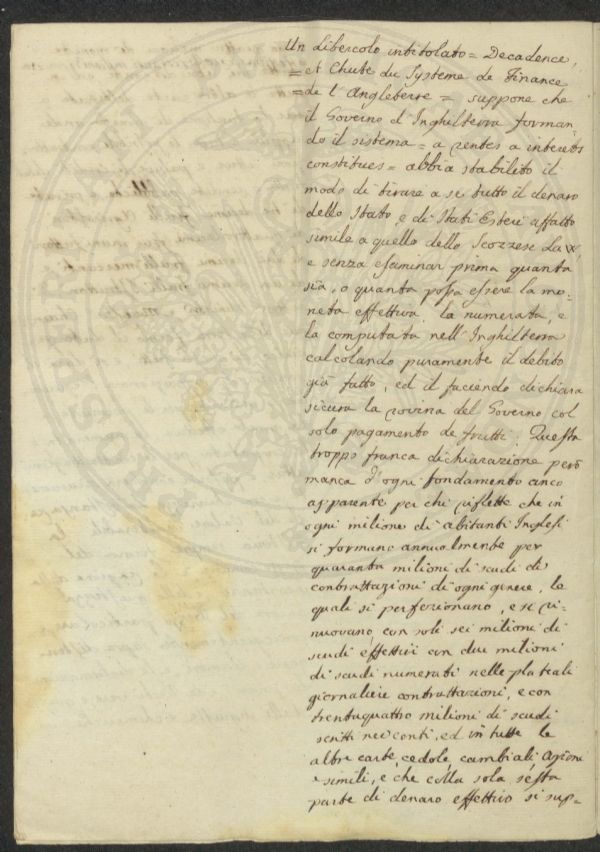 Un Libercolo intitolato = Decadence,
= et Chute du Systeme de Finance
= de l'Angleterre = suppone che
il Governo d'Inghilterra forman-
do il sistema = a rentes a interets
constitues = abbia stabilito il
modo di tirare a se tutto il denaro
dello Stato, e di Stati Esteri affatto
simile a quello dello Scozzese Law,
e senza esaminar prima quanta
sia, o quanta possa essere la mo-
neta effettiva, la numerata, e
la computata nell'Inghilterra
calcolando puramente il debito
già fatto, ed il faciendo dichiara
sicura la rovina del Governo col
solo pagamento de frutti. Questa
troppo franca dichiarazione però
manca d'ogni fondamento anco
apparente per chi riflette che in
ogni milione di abitanti Inglesi
si formano annualmente per
quaranta milioni di scudi di
contrattazioni di ogni genere, le
quali si perfezionano, e si ri-
nuovano con soli sei milioni di
scudi effettivi con due milioni
di scudi numerati nelle plateali
giornaliere contrattazioni, e con
trentaquattro milioni di scudi
scritti nei conti, ed in tutte le
altre carte, cedole, cambiali, Azioni
e simili, e che colla sola sesta
parte di denaro effettivo si sup-